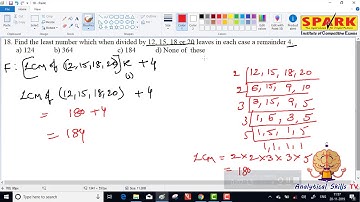 SPARK
Institute of Competitive Exams
18. Find the least number which when divided by 12, 15, 18 or 20 leaves in each case a remainder 4.
a) 124 b) 364 c) 184 d) None of these
F: [LCM of (12,15,18,20)]k + 4
(1)
LCM of (12,15,18,20) + 4
= 180 + 4
= 184
2 | 12, 15, 18, 20
2 | 6, 15, 9, 10
3 | 3, 15, 9, 5
3 | 1, 5, 3, 5
5 | 1, 5, 1, 5
1, 1, 1, 1
LCM = 2×2×3×3×5
= 180
Analytical Skills TV